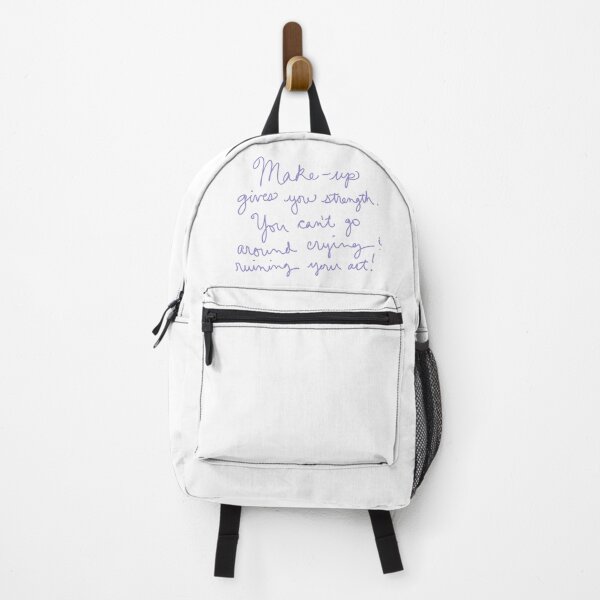 Make-up
gives you strength.
You can't go
around crying &
ruining your art!